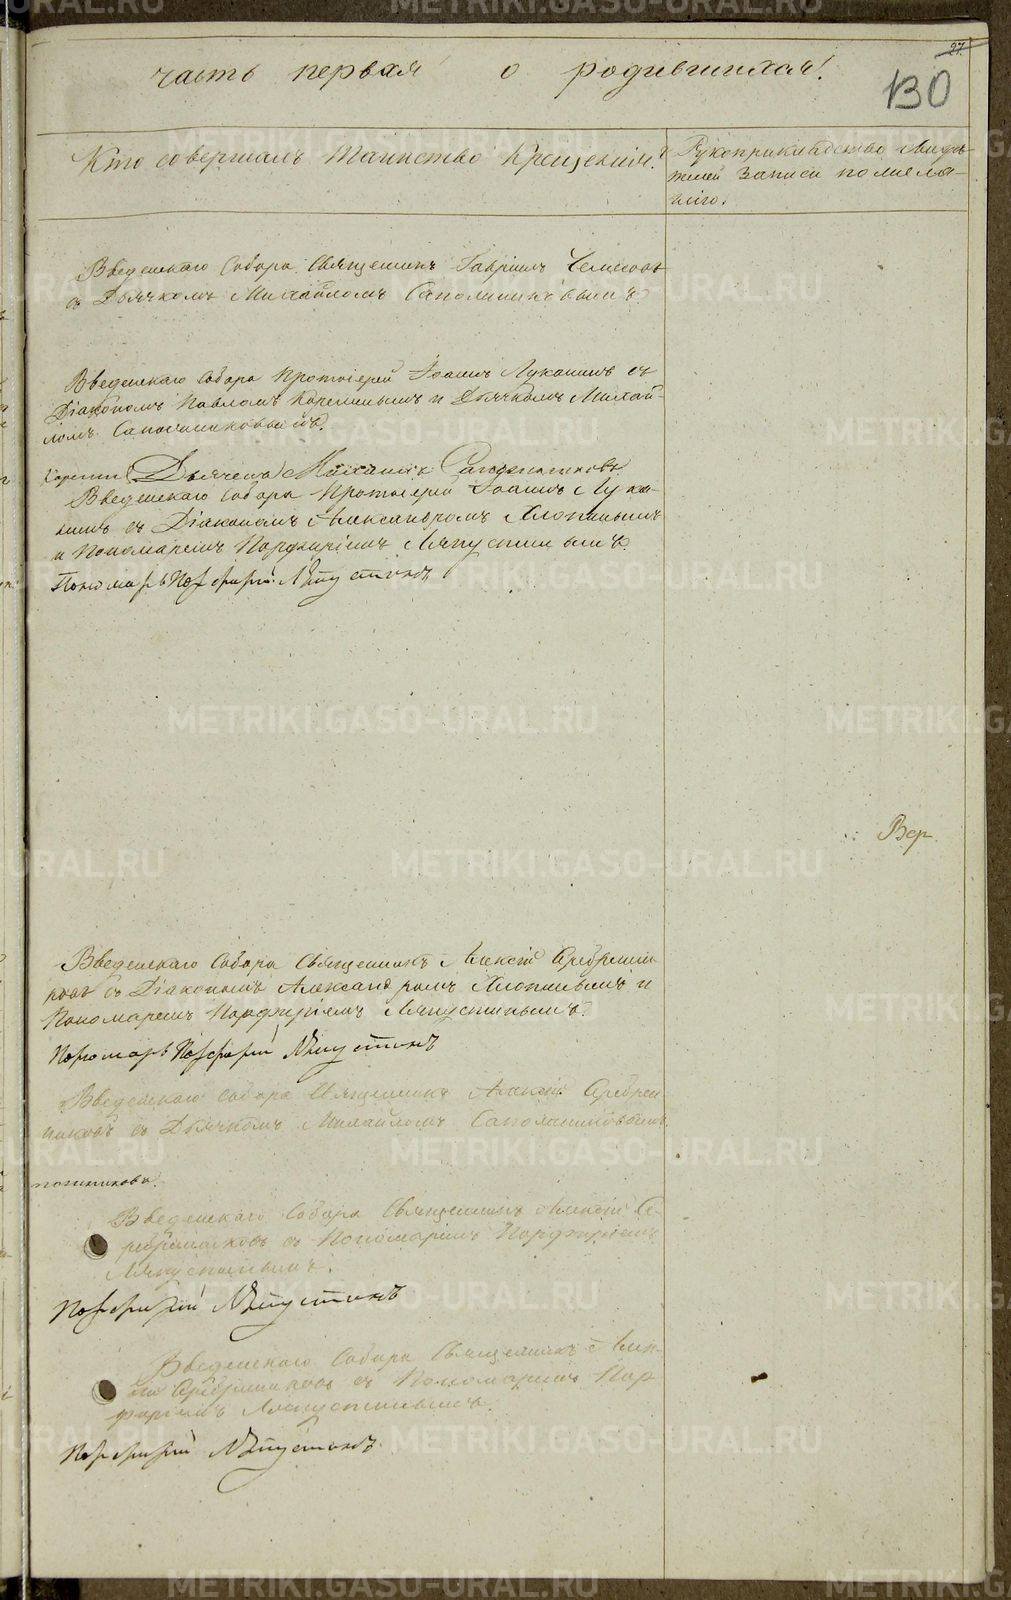 97
130
часть первая о родившихся.
Кто совершалъ таинство крещенія.
Рукоприкладство свидѣ-
телей записи по жела-
нію.
Введенскаго Собора Священникъ Гавріилъ
съ Дьячкомъ Михаиломъ Сапожниковымъ.
Введенскаго Собора Протоіерей Іоаннъ Луканинъ съ
Діакономъ Павломъ и Дьячкомъ Михаи-
ломъ Сапожниковымъ.
Дьячекъ Михаилъ Сапожниковъ
Введенскаго Собора Протоіерей Іоаннъ Лука-
нинъ съ Діакономъ Александромъ Хлопинымъ
и Пономаремъ Порфиріемъ Ляпустинымъ.
Пономарь Порфирій Ляпустинъ
Вер
Введенскаго Собора Священникъ Алексій Серебрени-
ковъ съ Діакономъ Александромъ Хлопинымъ и
Пономаремъ Порфиріемъ Ляпустинымъ.
Пономарь Порфирій Ляпустинъ
Введенскаго Собора Священникъ Алексій Серебрен-
никовъ съ Дьячкомъ Михаиломъ Сапожниковымъ
пожниковъ.
Введенскаго Собора Священникъ Алексій Се-
ребрениковъ съ Пономаремъ Порфиріемъ
Ляпустинымъ.
Порфирій Ляпустинъ
Введенскаго Собора Священникъ Алек-
сій Серебрениковъ съ Пономаремъ Пор-
фиріемъ Ляпустинымъ.
Порфирій Ляпустинъ
METRIKI.GASO-URAL.RU